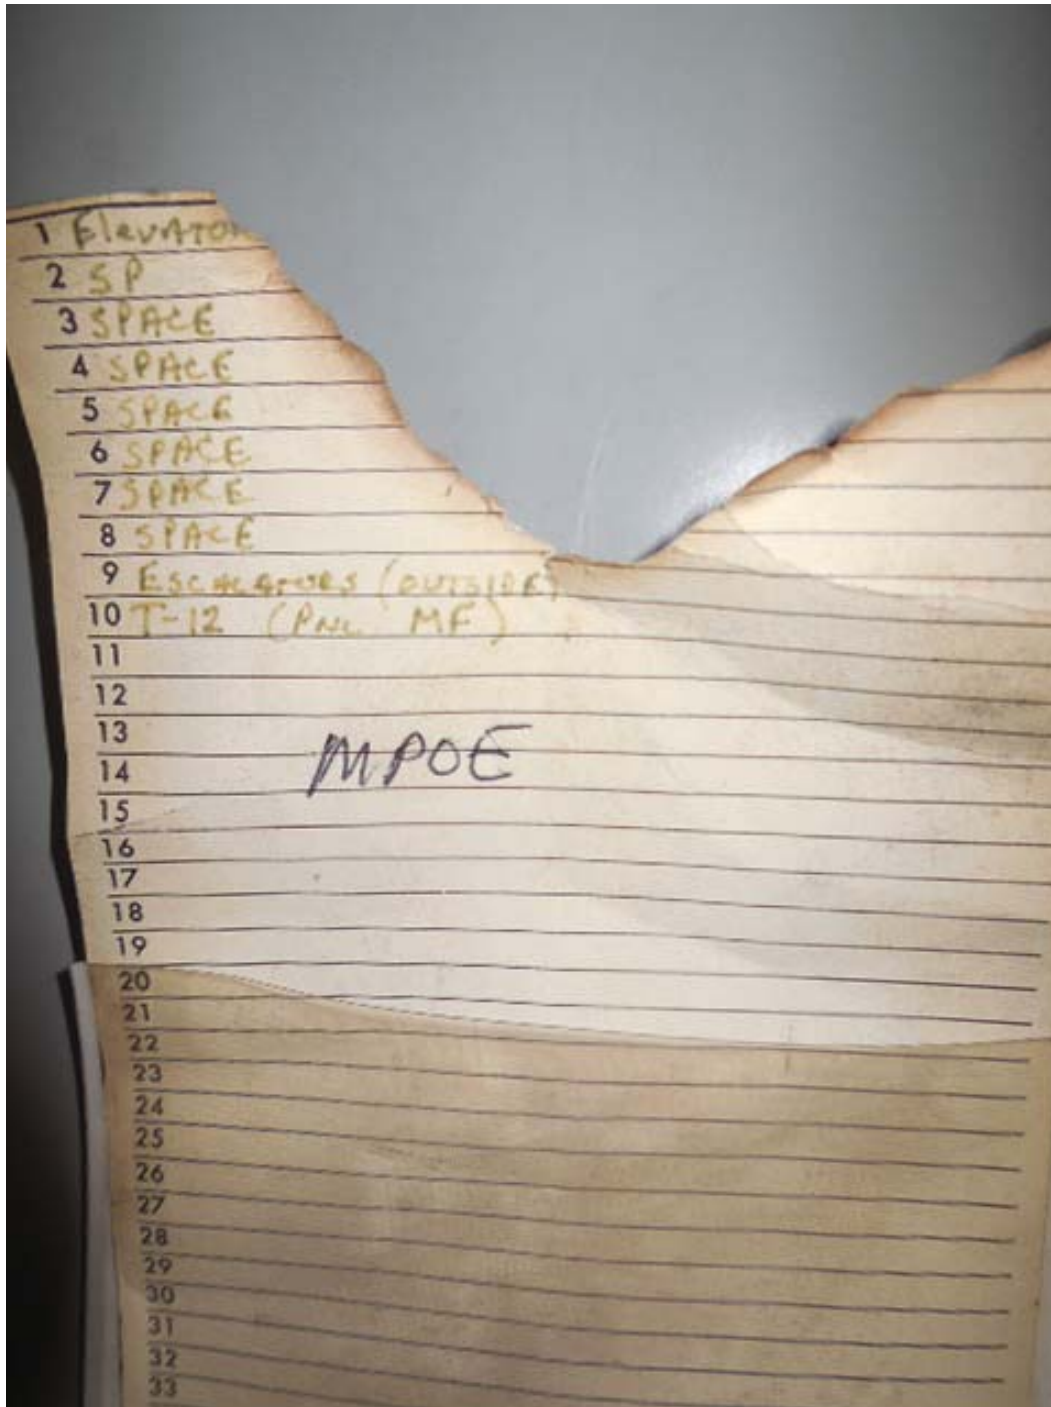 1 ElevATOR
2 SP
3 SPACE
4 SPACE
5 SPACE
6 SPACE
7 SPACE
8 SPACE
9 ESCALATORS (OUTSIDE)
10 T-12 (PNL MF)
11
12
13
MPOE
14
15
16
17
18
19
20
21
22
23
24
25
26
27
28
29
30
31
32
33